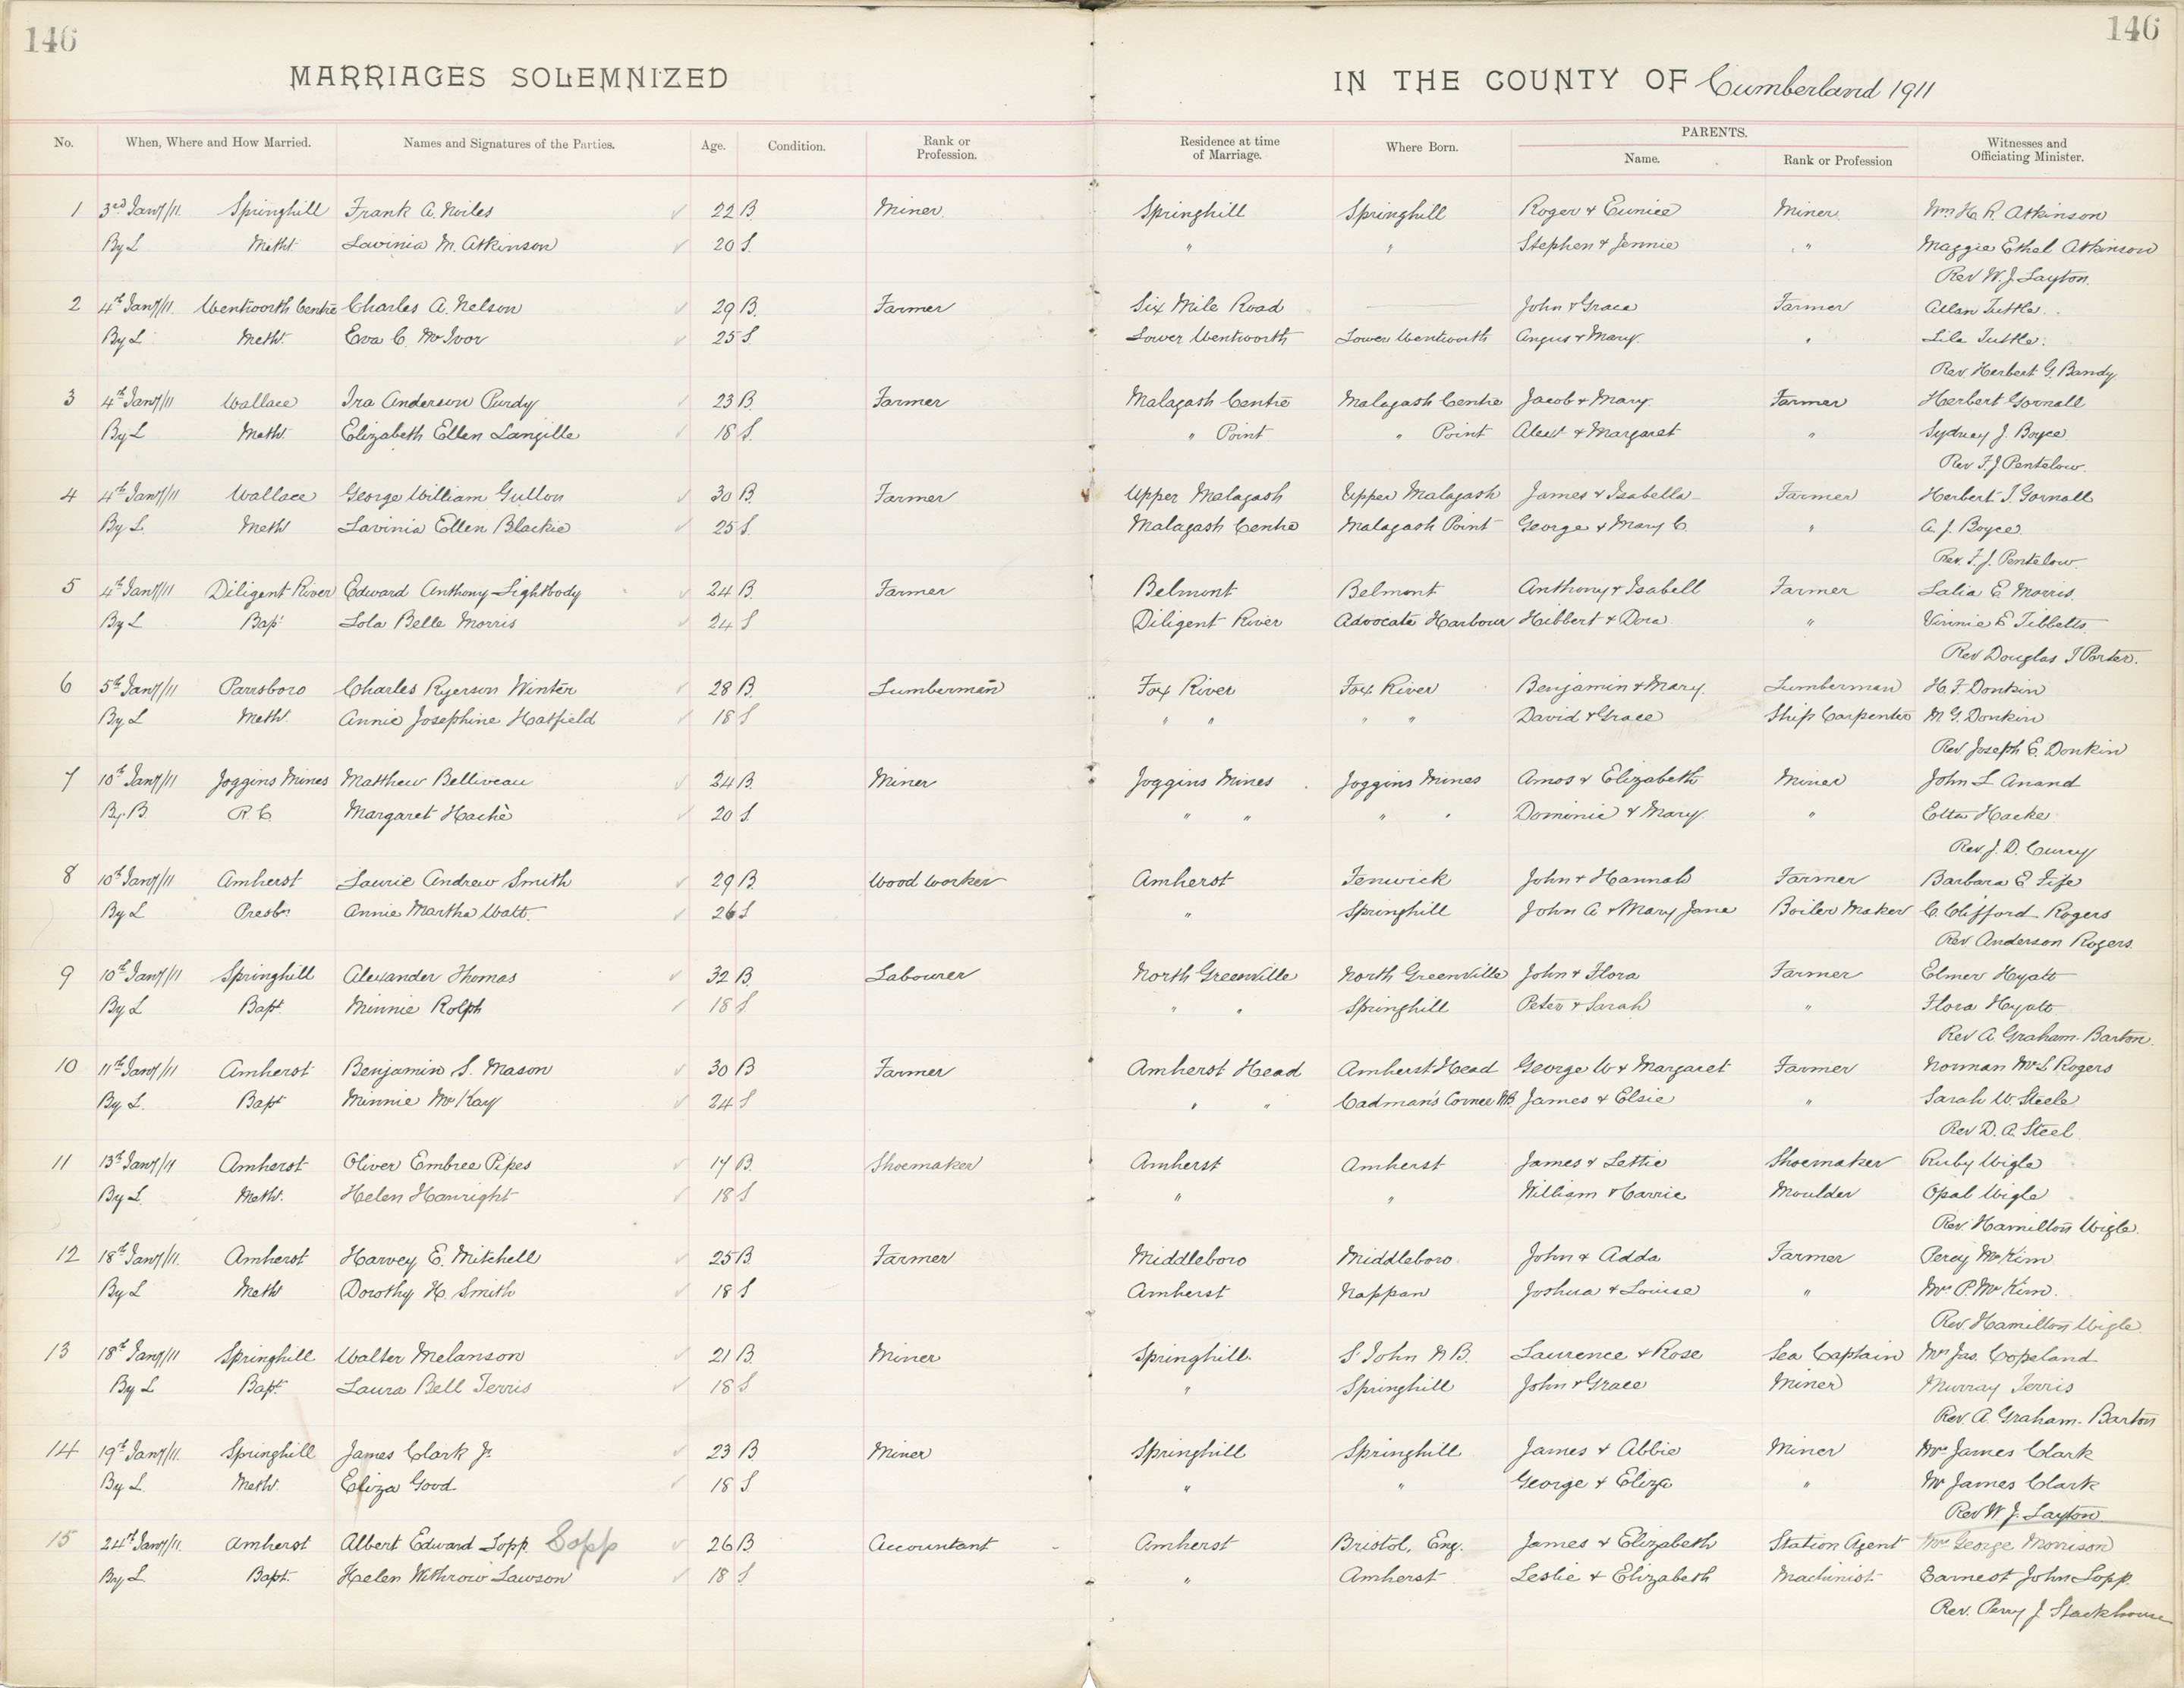 146
146
MARRIAGES SOLEMNIZED IN THE COUNTY OF Cumberland 1911
No. When, Where and How Married. Names and Signatures of the Parties. Age. Condition. Rank or Profession. Residence at time of Marriage. Where Born. PARENTS. Name. Rank or Profession Witnesses and Officiating Minister.
1 3rd Jany/11. Springhill Frank A. Noiles 22 B. Miner. Springhill Springhill Roger & Eunice Miner. Wm H. R. Atkinson
By L Meth. Lavinia M. Atkinson 20 S. " " Stephen & Jennie " Maggie Ethel Atkinson
Rev W. J. Layton.
2 4th Jany/11. Wentworth Centre Charles A. Nelson 29 B. Farmer Six Mile Road — John & Grace Farmer Allan Tuttle.
By L Meth. Eva C. McIvor 25 S. Lower Wentworth Lower Wentworth Angus & Mary. " Lila Tuttle.
Rev Herbert G. Bandy.
3 4th Jany/11 Wallace Ira Anderson Purdy 23 B. Farmer Malagash Centre Malagash Centre Jacob & Mary. Farmer Herbert Gornall
By L Meth. Elizabeth Ellen Langille 18 S. " Point " Point Alexr & Margaret " Sydney J. Boyce.
Rev F. J. Pentelow.
4 4th Jany/11 Wallace George William Gullon 30 B. Farmer Upper Malagash Upper Malagash James & Isabella Farmer Herbert T. Gornall
By L. Meth Lavinia Ellen Blackie 25 S. Malagash Centre Malagash Point George & Mary C. " A. J. Boyce.
Rev. F. J. Pentelow.
5 4th Jany/11 Diligent River Edward Anthony Lightbody 24 B. Farmer Belmont Belmont Anthony & Isabell Farmer Lalia E. Morris.
By L Bapt Lola Belle Morris 24 S Diligent River Advocate Harbour Hibbert & Dora " Vinnie E Tibbetts.
Rev Douglas I Porter.
6 5th Jany/11 Parrsboro Charles Ryerson Winter 28 B. Lumberman Fox River Fox River Benjamin & Mary Lumberman H. F. Donkin
By L Meth. Annie Josephine Hatfield 18 S " " " " David & Grace Ship Carpenter M. G. Donkin
Rev Joseph E. Donkin
7 10th Jany/11 Joggins Mines Matthew Belliveau 24 B. Miner Joggins Mines Joggins Mines Amos & Elizabeth Miner John L Anand
By B. R. C. Margaret Hachè 20 S. " " " " Dominic & Mary. " Etta Hacke
Rev. J. D. Curry
8 10th Jany/11 Amherst Laurie Andrew Smith 29 B. Wood Worker Amherst Fenwick John & Hannah Farmer Barbara E. Fife
By L Presbn Annie Martha Watt. 26 S " Springhill John A & Mary Jane Boiler Maker C. Clifford Rogers
Rev Anderson Rogers.
9 10th Jany/11 Springhill Alexander Thomas 32 B. Labourer North Greenville North Greenville John & Flora Farmer Elmer Hyatt
By L Bapt. Minnie Rolph 18 S. " " Springhill Peter & Sarah " Flora Hyatt
Rev A. Graham. Barton.
10 11th Jany/11 Amherst Benjamin S. Mason 30 B Farmer Amherst Head Amherst Head George W & Margaret Farmer Norman McL Rogers
By L. Bapt Minnie McKay 24 S " " Cadman's Corner N.B. James & Elsie " Sarah W. Steele
Rev D. A. Steel.
11 13th Jany/11 Amherst Oliver Embree Pipes 17 B. Shoemaker Amherst Amherst James & Lettie Shoemaker Ruby Wigle
By L. Meth. Helen Hanright 18 S " " William & Carrie Moulder Opal Wigle
Rev. Hamilton Wigle.
12 18th Jany/11. Amherst Harvey E. Mitchell 25 B. Farmer Middleboro Middleboro. John & Adda Farmer Percy McKim.
By L Meth Dorothy H. Smith 18 S Amherst Nappan Joshua & Louise " Mrs P. McKim.
Rev Hamilton Wigle.
13 18th Jany/11 Springhill Walter Melanson 21 B. Miner Springhill. St John N B. Laurence & Rose Sea Captain Mrs Jas. Copeland
By L Bapt. Laura Bell Terris 18 S " Springhill John & Grace Miner Murray Terris
Rev. A. Graham. Barton
14 19th Jany/11. Springhill James Clark Jr. 23 B Miner Springhill Springhill James & Abbie Miner Mrs James Clark
By L. Meth. Eliza Good 18 S " " George & Eliza " Mr James Clark
Rev W J. Layton.
15 24th Jany/11. Amherst Albert Edward Sopp. Sopp 26 B Accountant Amherst Bristol, Eng. James & Elizabeth Station Agent Mrs George Morrison
By L. Bapt. Helen Withrow Lawson 18 S " Amherst Leslie & Elizabeth Machinist Earnest John Sopp.
Rev. Perry J. Stackhouse